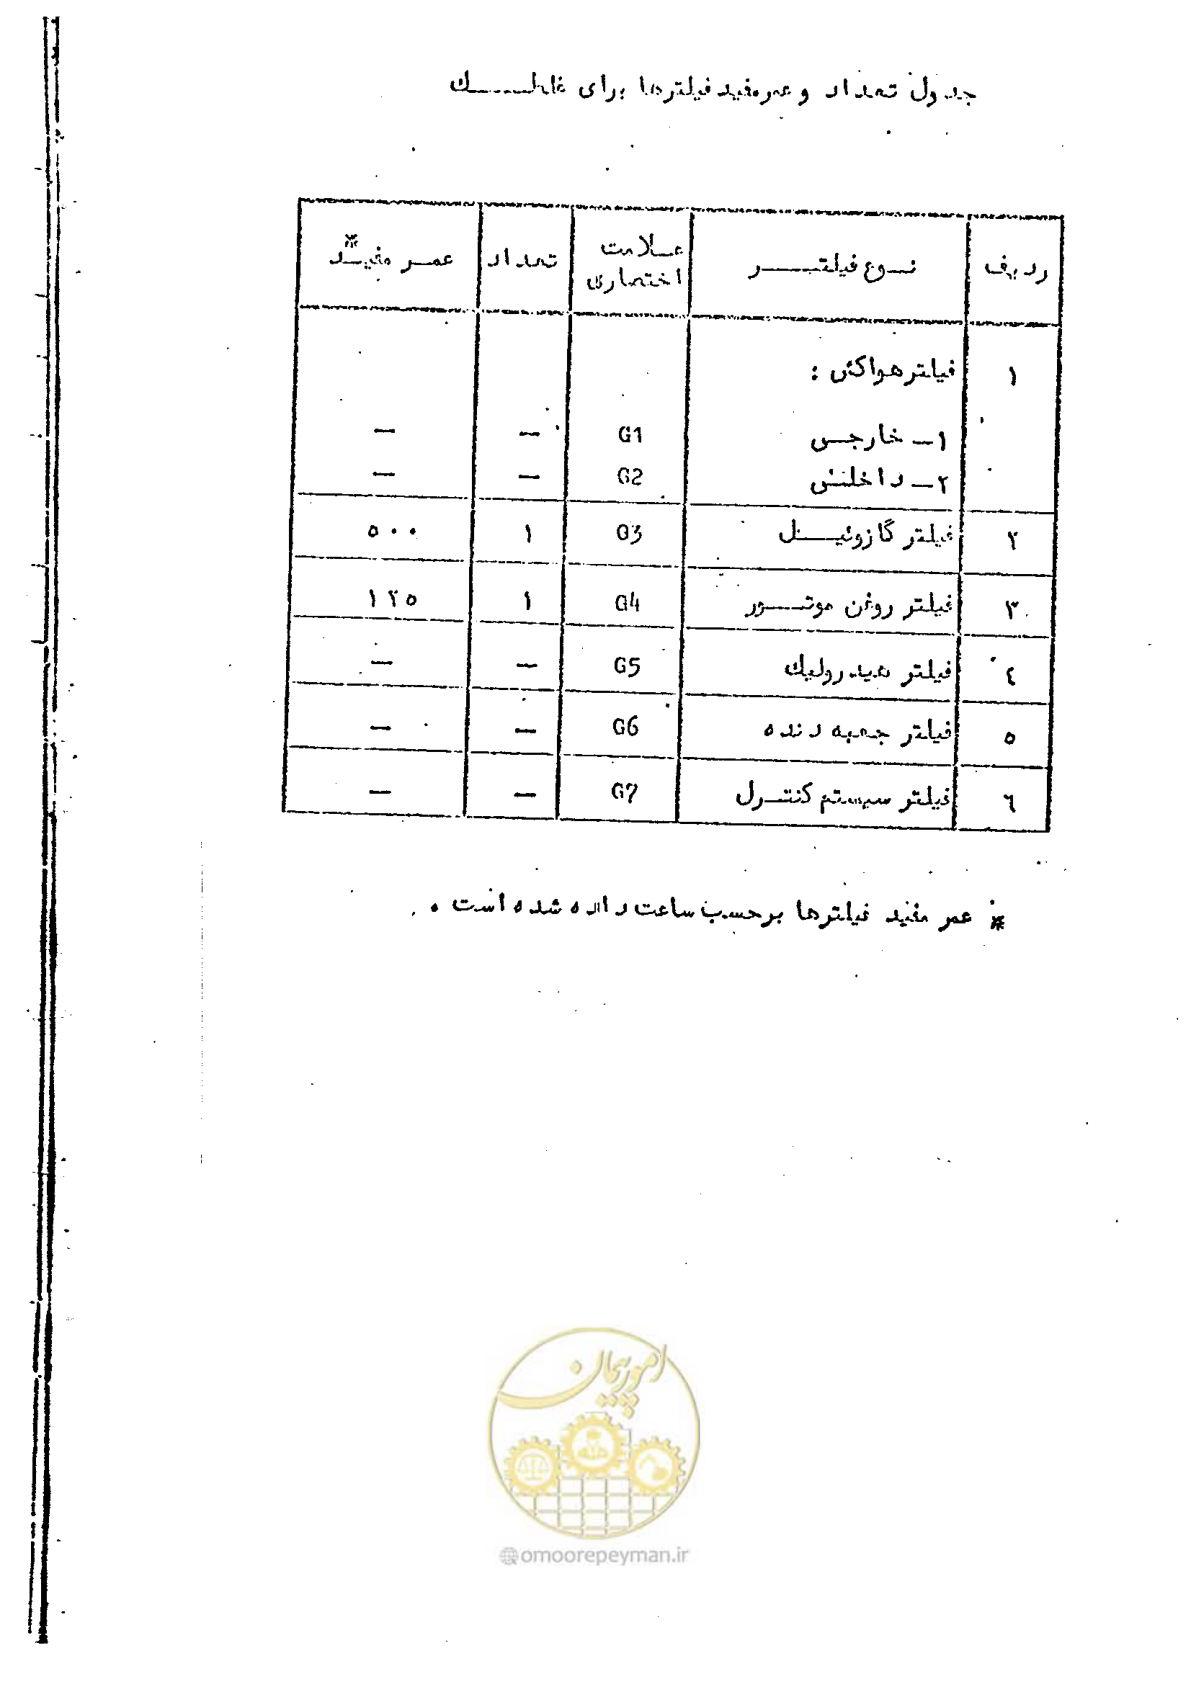 جدول تعداد و عمرمفید فیلترها برای غلطک
ردیف نوع فیلتر علامت اختصاری تعداد عمر مفید*
۱ فیلترهواکش :
۱- خارجی G1 - -
۲- داخلی G2 - -
۲ فیلتر گازوئیل G3 ۱ ۵۰۰
۳ فیلتر روغن موتور G4 ۱ ۱۲۵
٤ فیلتر هیدرولیک G5 - -
۵ فیلتر جعبه دنده G6 - -
٦ فیلتر سیستم کنترل G7 - -
* عمر مفید فیلترها برحسب ساعت داده شده است .
امور پیمان
@omoorepeyman.ir